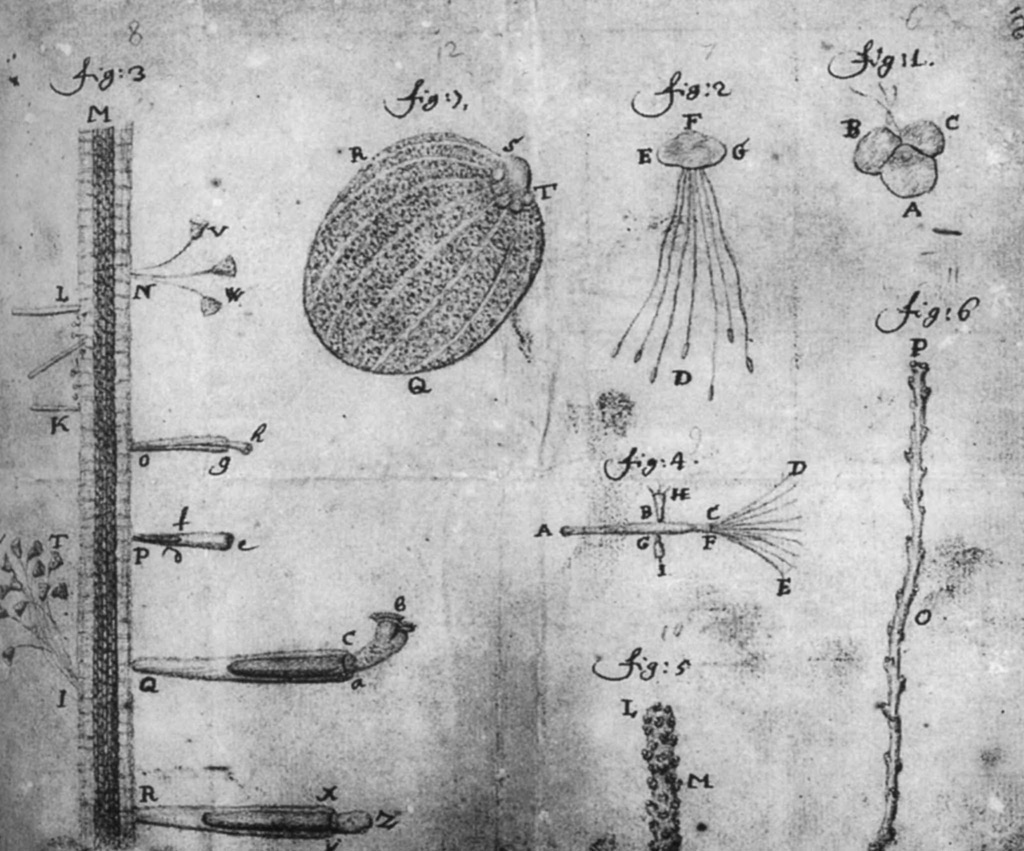 8
fig: 3
M
L
K
N
V
W
o
g
h
P
f
d
e
T
I
Q
C
B
a
R
X
Z
12
fig: 7,
R
S
T
Q
7
fig: 2
F
E
G
D
6
fig: 1.
B
C
A
9
fig: 4.
D
H
B
C
A
G
F
I
E
10
fig: 5
L
M
11
fig: 6
P
O